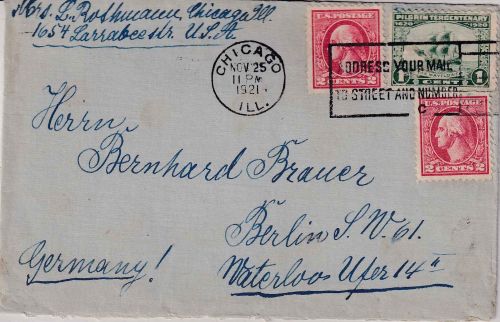 Mrs. L. Rothmann, Chicago Ill.
1654 Larrabeestr. U.S.A
CHICAGO
NOV 25
11 PM
1921
ILL.
ADDRESS YOUR MAIL
TO STREET AND NUMBER
U.S. POSTAGE
2 CENTS 2
PILGRIM TERCENTENARY
1620 1920
1 CENT 1
U.S. POSTAGE
2 CENTS 2
Herrn
Bernhard Brauer
Berlin S.W. 61.
Germany!
Waterloo Ufer 14 II